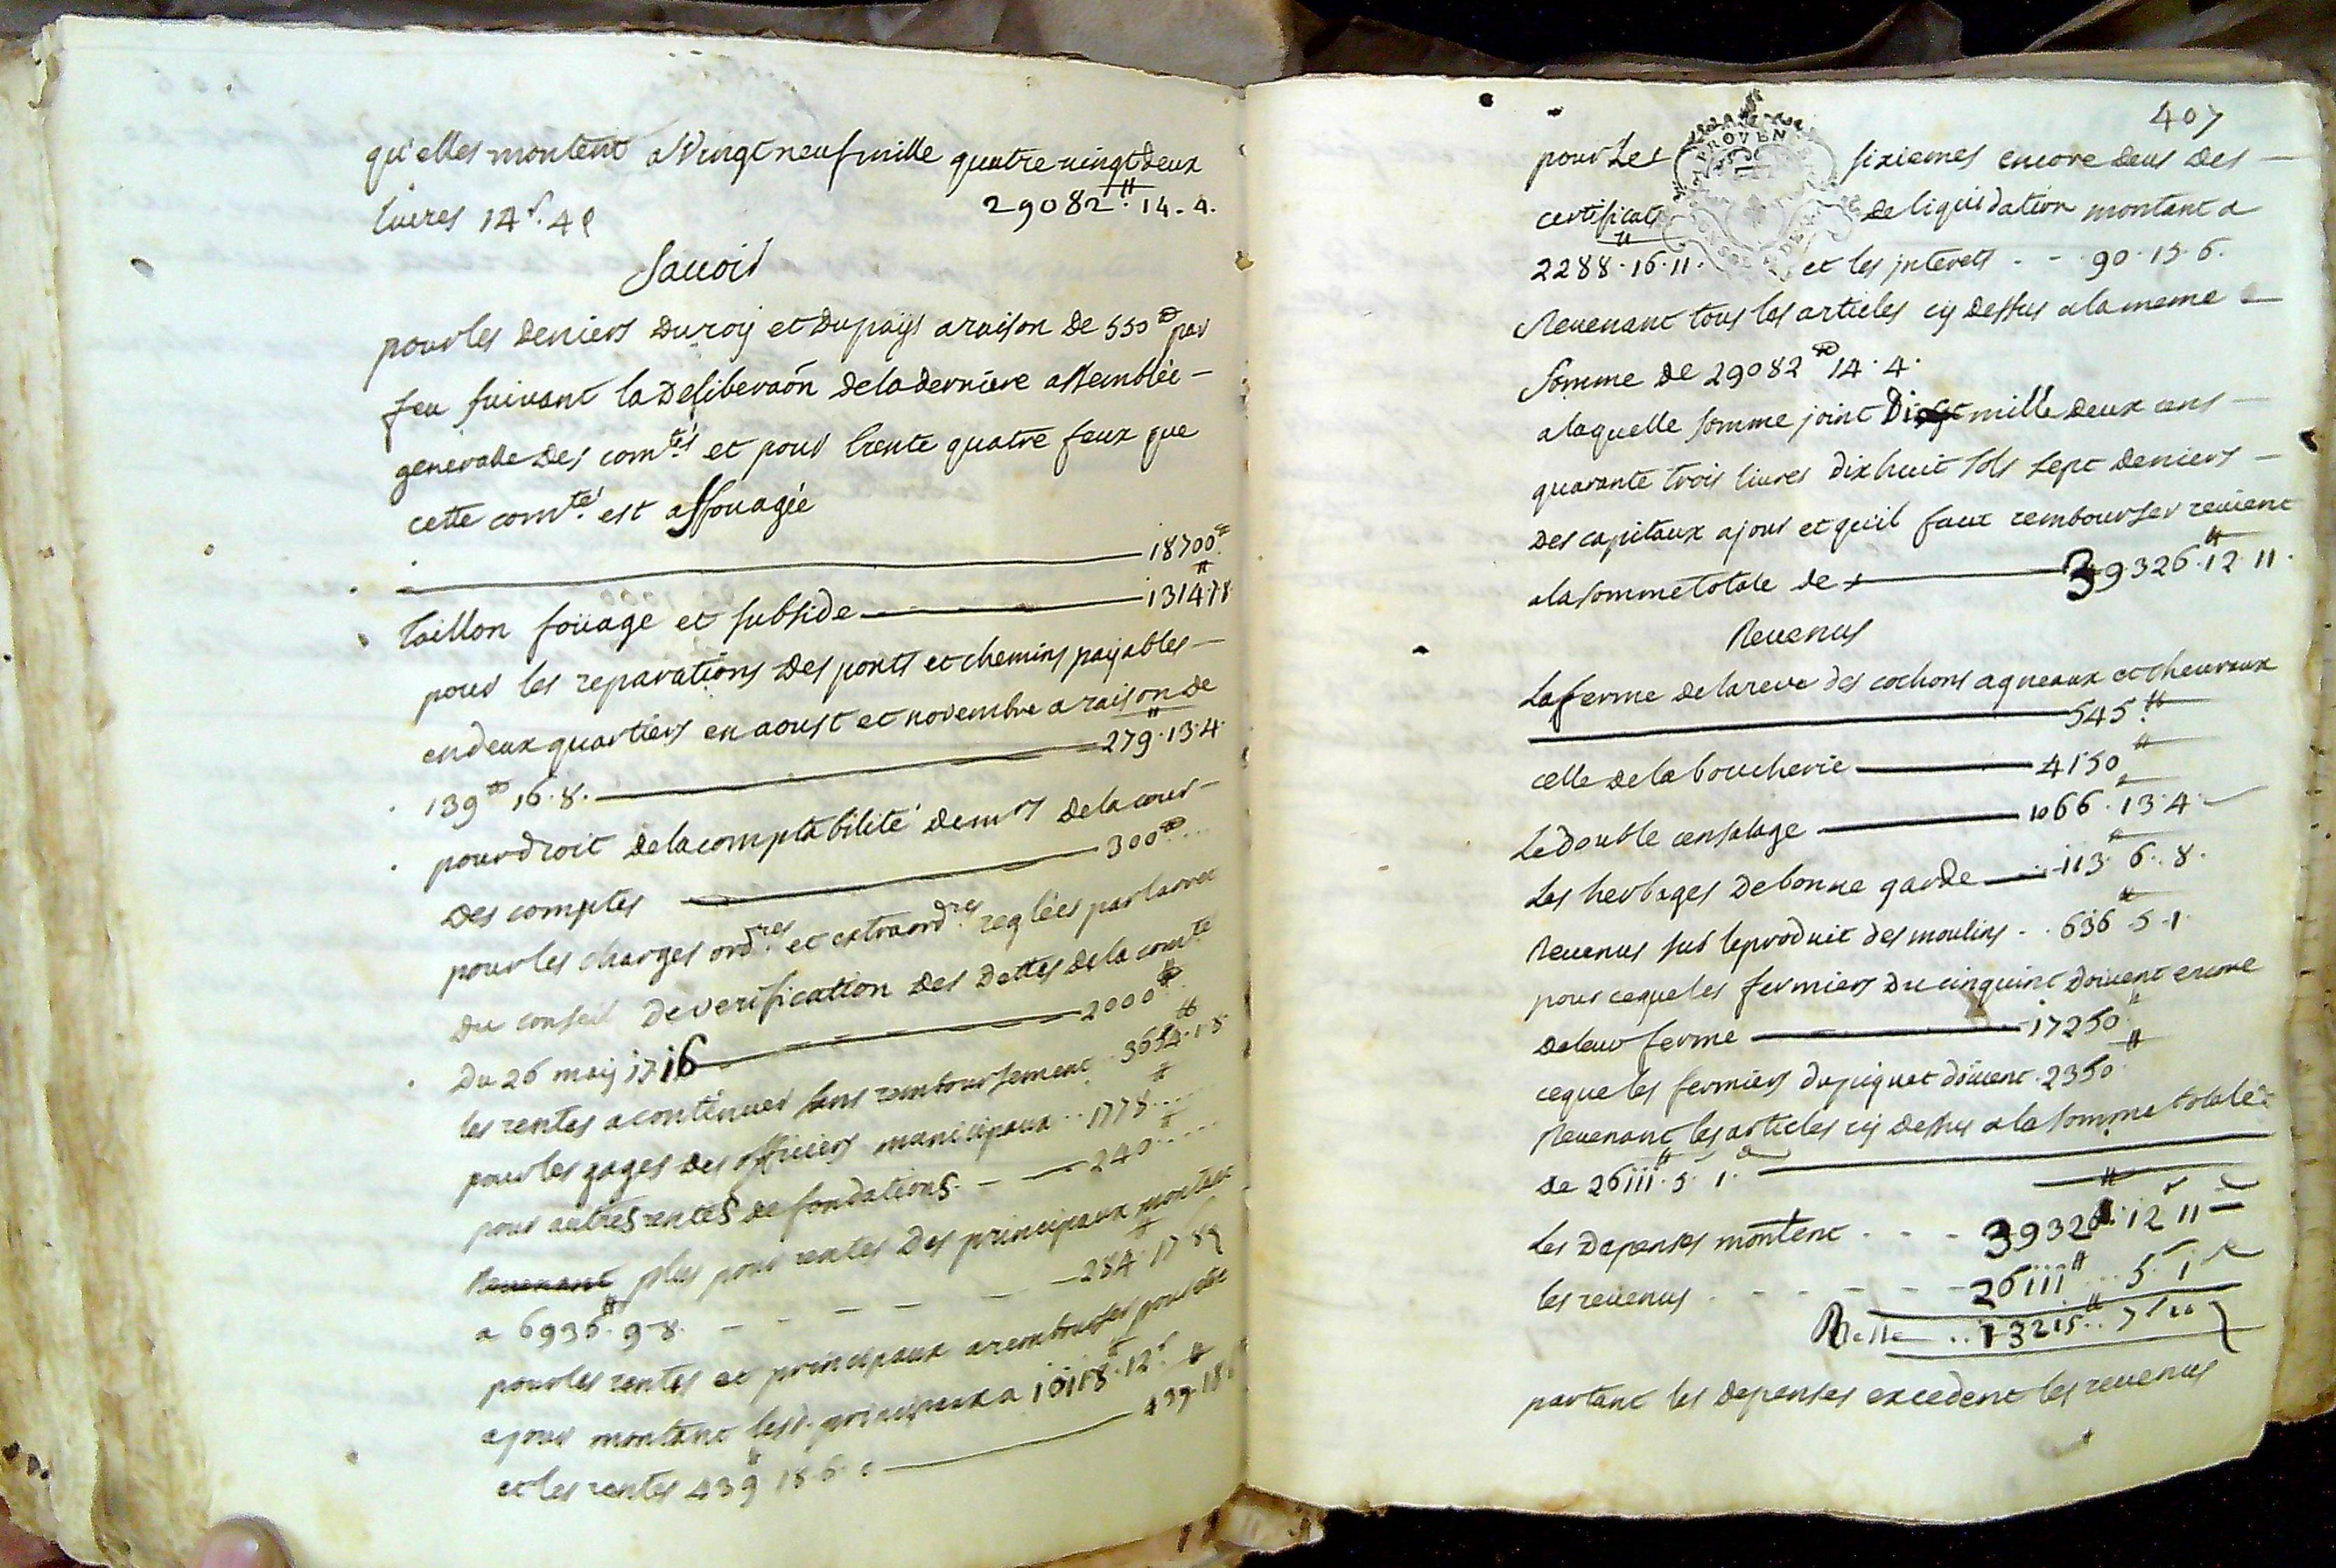 qu'elles montent a Vingt neuf mille quatre vingt deux
livres 14 s. 4 d 29082 ₶. 14. 4.
Sauoir
pour les deniers du roy et du pays a raison de 550 ₶ par
feu suiuant la deliberaon de la derniere assemblée —
generalle des com.tés et pour trente quatre feux que
cette com.té est affouagée
18700 ₶.
Taillon foüage et subside — 1314 ₶. 7. 8
pour les reparations des ponts et chemins payables —
en deux quartiers en aoust et novembre a raison de
139 ₶ 16. 8. — 279 ₶. 13. 4
pour droit de la comptabilité de mrs de la cour —
des comptes — 300 ₶...
pour les charges ord.res et extraord.res reglées par larret
du conseil de verification des dettes de la com.té
du 26 may 1716 — 2000 ₶.
les rentes a continuer sans remboursement .. 3654 ₶. 1. 8
pour les gages des officiers municipaux .. 1778 ₶....
pour autres rentes de fondations. — — 240 ₶.....
plus pour rentes des principaux montent
a 6936 ₶. 9. 8. — — — — 284 ₶. 17. 8 d
pour les rentes et principaux a rembourser pour etre
a jour montant lesd. principaux a 10118 ₶. 12 s.
et les rentes 439 ₶ 18. 6. — 439 ₶. 18.
407
PROVEN
pour les sixiemes encore deus des —
certificats de liquidation montant a
2288 ₶. 16. 11. et les jnterets - - 90. 15. 6.
Reuenant tous les articles cy dessus a la meme —
Somme de 29082 ₶ 14. 4.
a laquelle somme joint Dix mille deux cens —
quarante trois liures dixhuit sols sept deniers —
des capitaux ajour et qu'il faut rembourser reuient
a la somme totale de — 39326 ₶. 12. 11.
Reuenus
La ferme de la reve des cochons agneaux et cheureaux
— 545 ₶.
celle de la boucherie — 4150 ₶
Le double censalage — 1066 ₶. 13. 4.
Les herbages de bonne garde — 113 ₶. 6. 8.
Reuenus sur le produit des moulins - . 636 ₶. 5. 1.
pour ce que les fermiers du cinquint doiuent encore
de leur ferme — 17250 ₶.
ce que les fermiers du piquet doiuent . 2350 ₶.
Reuenant les articles cy dessus a la somme totale
de 26111 ₶. 5. 1. d —
les depenses montent . - - - 39326 ₶. 12 s 11 d
les reuenus . - - - - - 26111 ₶ ... 5 s 1 d
Reste .. 13215 ₶.. 7 s 10 d
partant les depenses excedent les reuenus